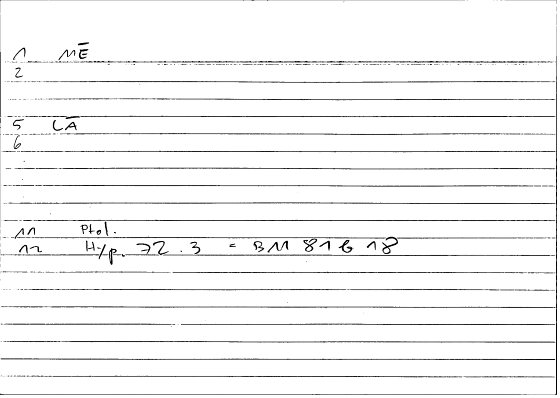 1 MĒ
2
5 LĀ
6
11 Ptol.
12 Hyp. 72.3 = BM 81 b 18